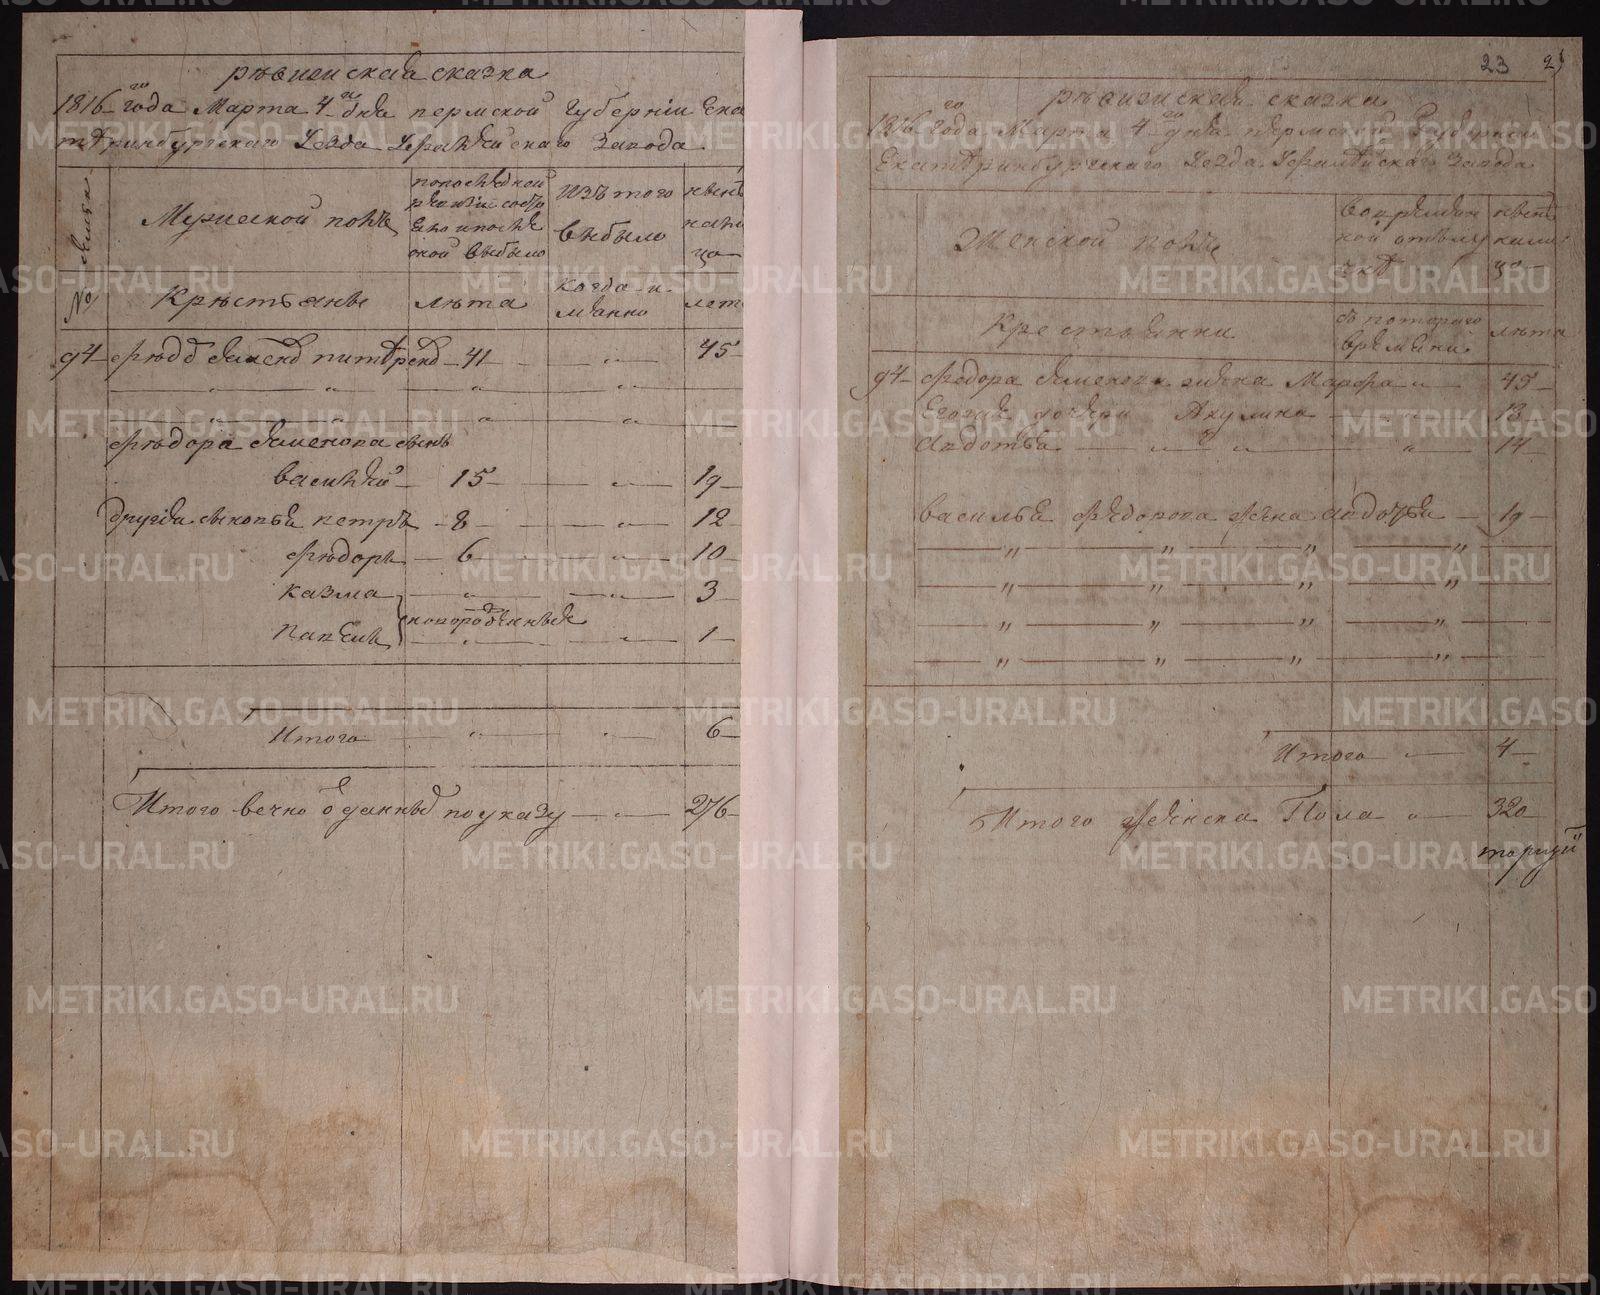 рѣвизиская сказка
1816 го года Марта 4 го дня пермской Губерніи Ека
тѣринбургскаго Уезда Уфалѣйскаго Завода
№ семьи
Мужеской полъ
попослѣдной ревизіи состояло и послѣ оной выбыло
Изъ того выбыло
ныне на лицо
Крѣстьяне
лѣта
когда и мѣнно
лет
94 Фѣдоръ Семѣнъ 41 45
Фѣдора Семенова сынъ
василѣй 15 19
другія сыновья петръ 8 12
Фѣдоръ 6 10
казма 3
новорожденные
Павелъ 1
Итого 6
Итого вечно оданныѣ по указу 276
23
рѣвизиская сказка
1816 го года Марта 4 го дня пѣрмской Губерніи
Екатѣринбургскаго Уезда Уфалѣйскаго Завода
Женской полъ
Вовремян ной отлучкѣ
ныне на лицо
Крестьянки
съ котораго времѣни
лѣта
94 Фѣдора Семенова жена Марфа 45
Егожъ дочери Акулина 13
Авдотья 14
василья Фѣдорова жена авдотья 19
Итого 4
Итого женска Пола 320
METRIKI.GASO-URAL.RU